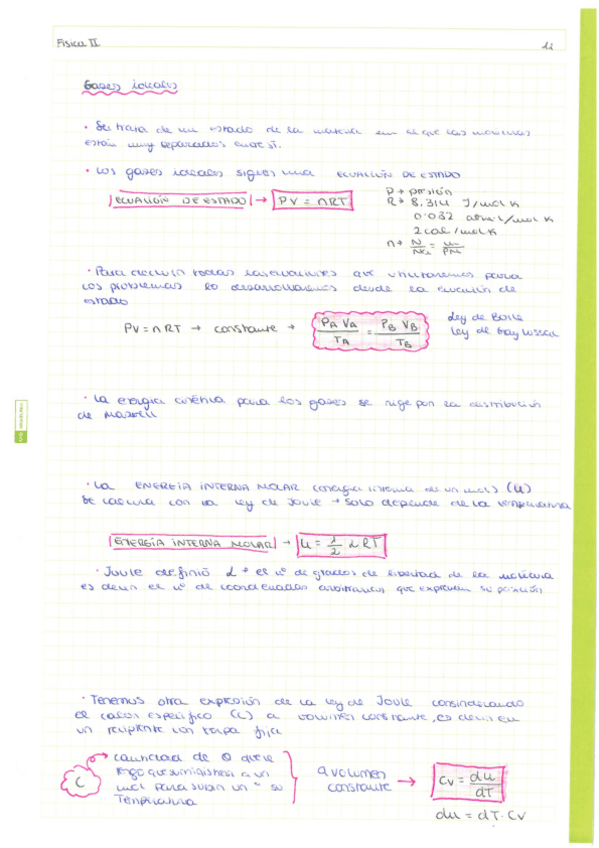 Física II
12
Gases ideales
• Se trata de un estado de la materia en el que las moléculas
están muy separadas entre sí.
• Los gases ideales siguen una ECUACIÓN DE ESTADO
ECUACIÓN DE ESTADO → PV = nRT
P → presión
R → 8,314 J/mol K
0.032 atm·l/mol K
2 cal/mol K
n → N/NA = m/PM
• Para deducir todas las ecuaciones que utilizaremos para
los problemas lo desarrollaremos desde la ecuación de
estado
PV = nRT → constante → PA VA / TA = PB VB / TB
Ley de Boile
Ley de Gay Lossac
• La energía cinética para los gases se rige por la distribución
de Maxwell
• La ENERGÍA INTERNA MOLAR (energía interna de un mol) (u)
se calcula con la ley de Joule → solo depende de la temperatura
ENERGÍA INTERNA MOLAR → u = 1/2 L RT
• Joule definió L → el nº de grados de libertad de la molécula
es decir el nº de coordenadas arbitrarias que expresan su posición
• Tenemos otra expresión de la ley de Joule considerando
el calor específico (C) a volumen constante, es decir en
un recipiente con tapa fija
C
cantidad de Q que le
tengo que suministrar a un
mol para subir un º su
Temperatura
a volumen
constante → CV = du/dT
du = dT · CV